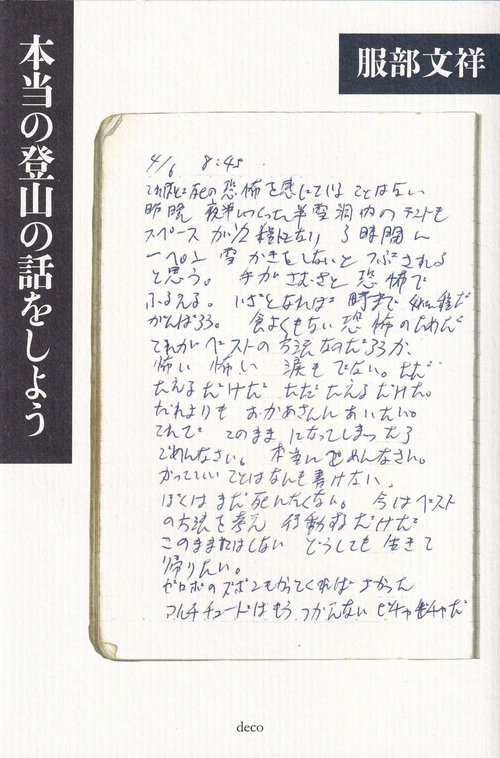 本当の登山の話をしよう
服部文祥
4/6 8:45
これほど死の恐怖を感じている ことはない
昨晩 夜半 つくった半雪洞内のテントも
スペースが1/2 程になり 3時間に
一ぺん 雪かきをしないと つぶされる
と思う。 手がさむさと 恐怖で
ふるえる。 いざとなれば 時まで
がんばろう。 食よくもない 恐怖のためだ
これがベストの方法なのだろうか、
怖い 怖い 涙もでない。ただ
たえるだけだ ただ たえるだけだ。
だれよりも おかあさんにあいたい。
これで このまま になってしまったら
ごめんなさい。 本当にごめんなさい。
かっていいことはなんも書けない、
ぼくはまだ死にたくない。 今はベスト
の方法を考え 行動するだけだ
このままねはしない どうしても 生きて
帰りたい。
ゼロポのズボンもかってくれば よかった
アルチチュードはもう つかんない ビチャビチャだ
deco